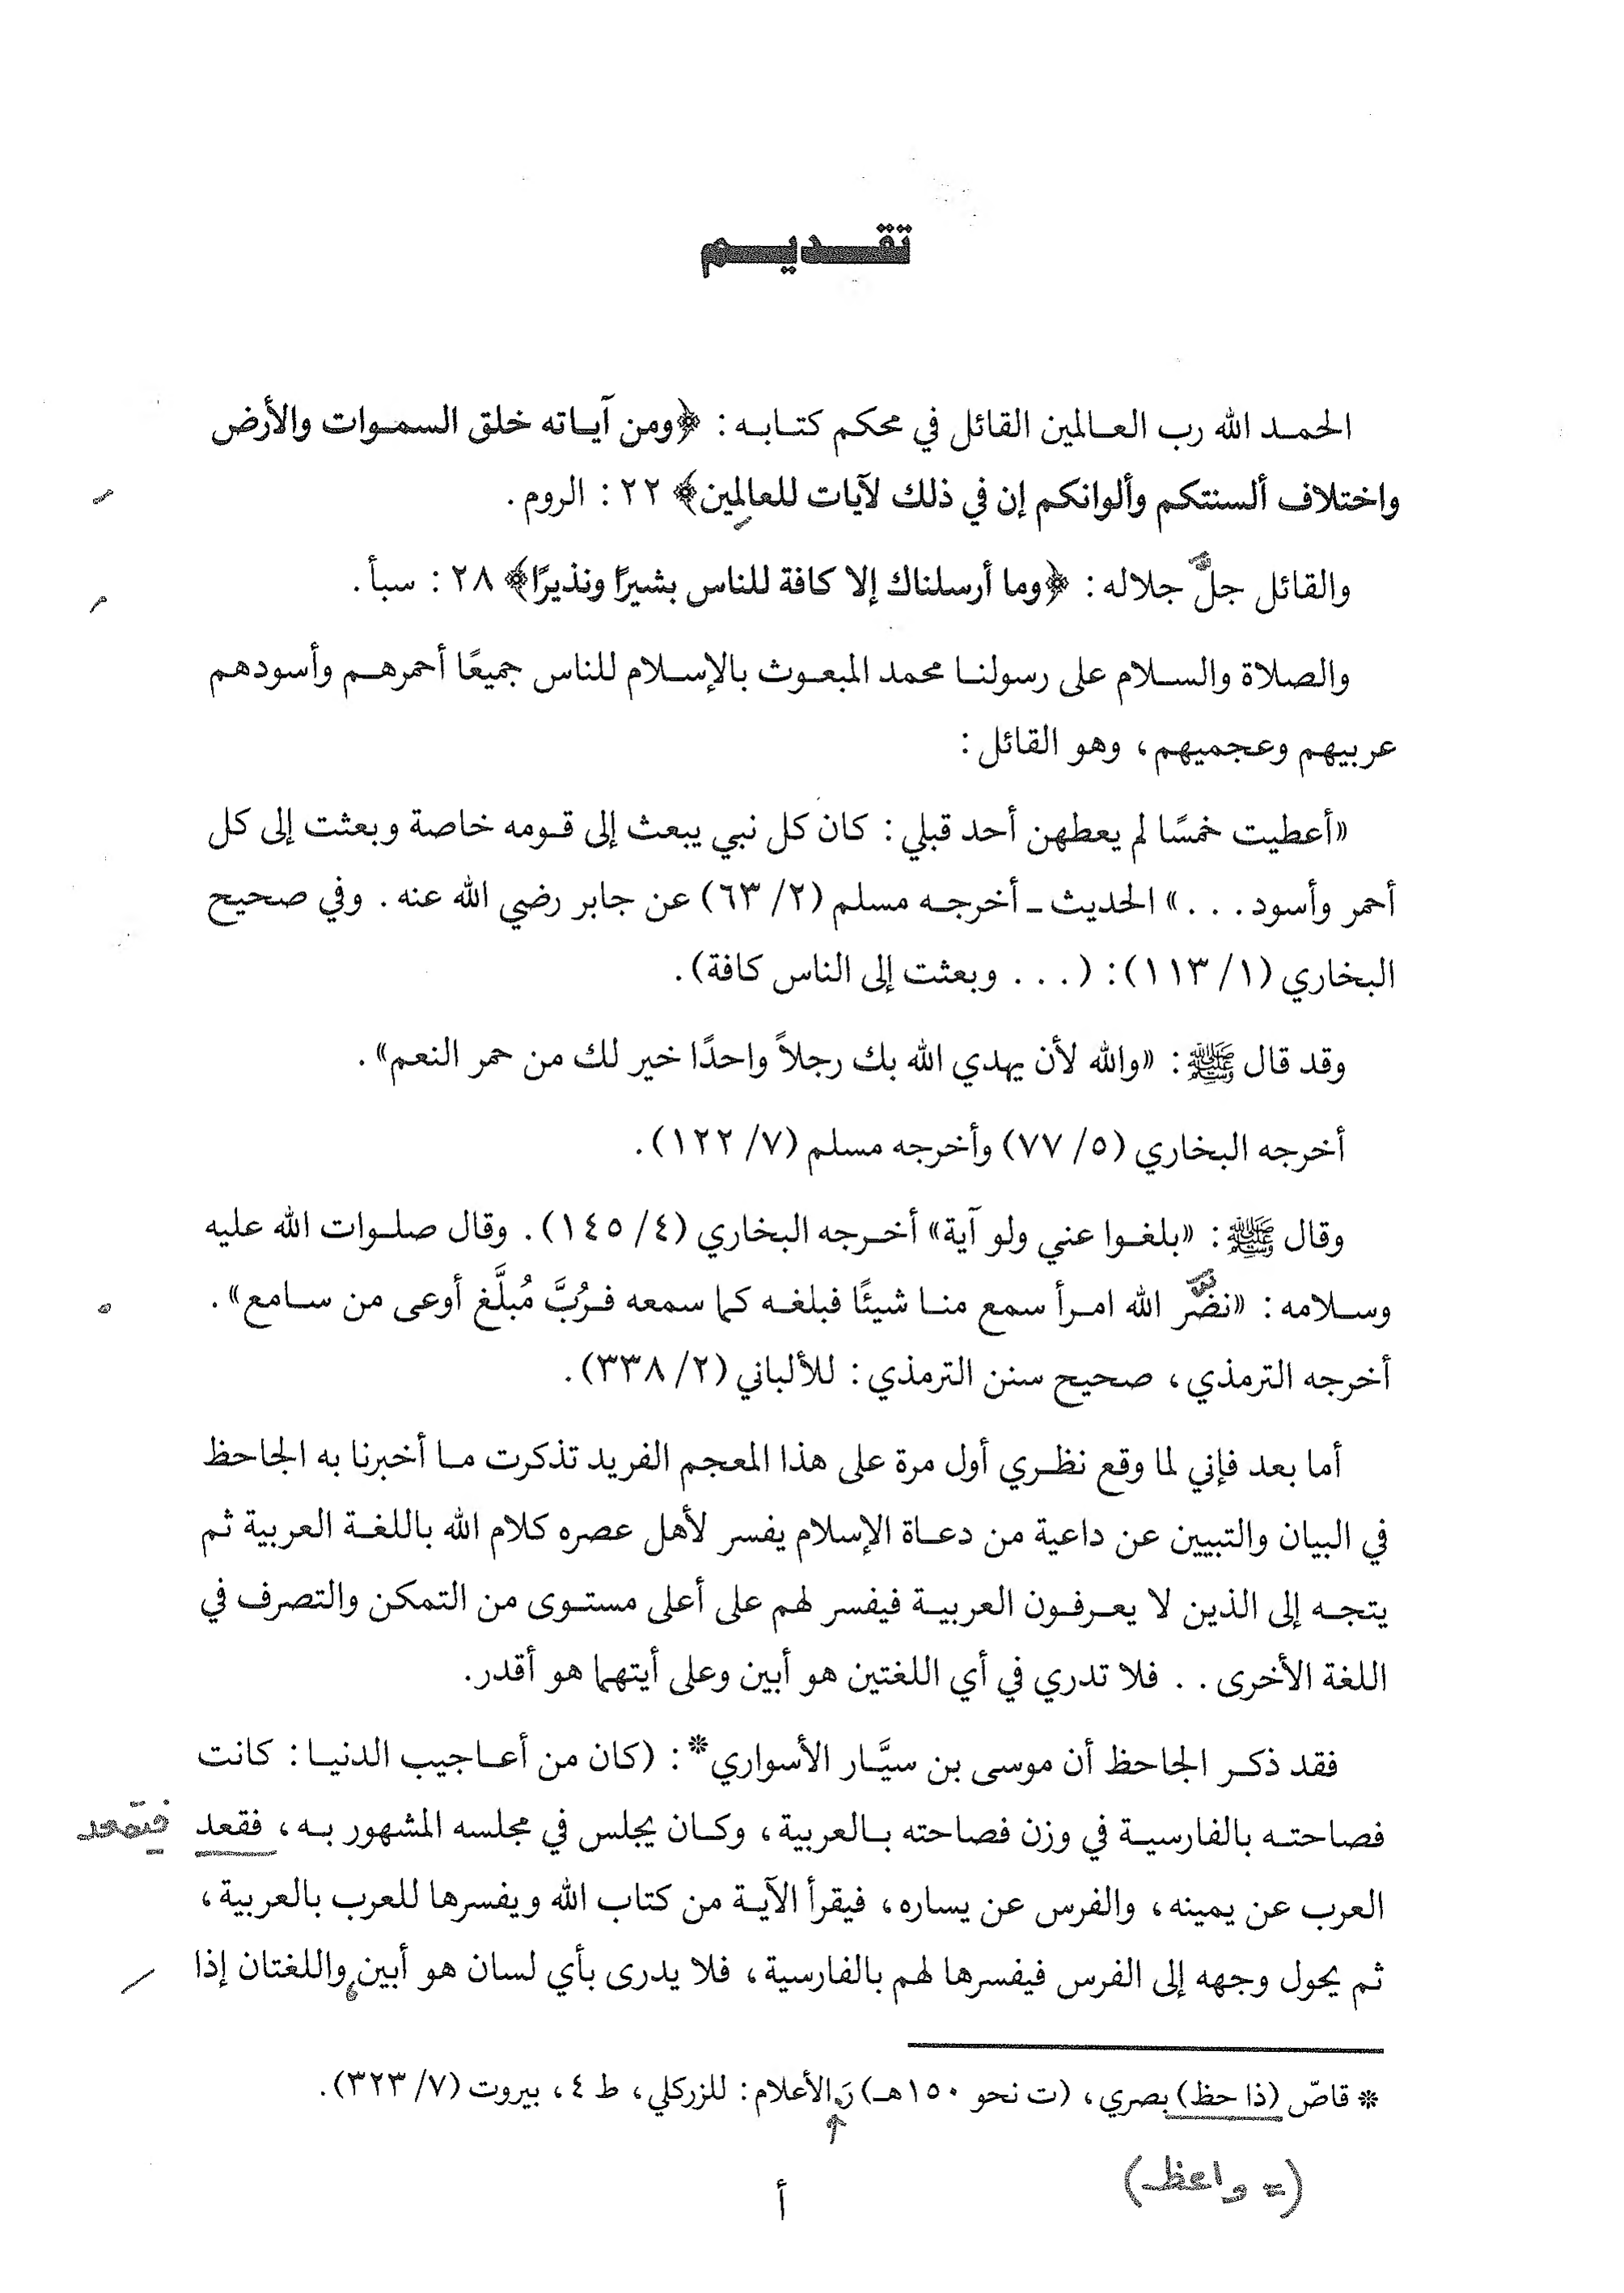 تقديم
الحمد الله رب العالمين القائل في محكم كتابه: ﴿ومن آياته خلق السموات والأرض
واختلاف ألسنتكم وألوانكم إن في ذلك لآيات للعالِمين﴾ ٢٢: الروم.
والقائل جلَّ جلاله: ﴿وما أرسلناك إلا كافة للناس بشيرًا ونذيرًا﴾ ٢٨: سبأ.
والصلاة والسلام على رسولنا محمد المبعوث بالإسلام للناس جميعًا أحمرهم وأسودهم
عربيهم وعجميهم، وهو القائل:
«أعطيت خمسًا لم يعطهن أحد قبلي: كان كل نبي يبعث إلى قومه خاصة وبعثت إلى كل
أحمر وأسود...» الحديث ـ أخرجه مسلم (٢/ ٦٣) عن جابر رضي الله عنه. وفي صحيح
البخاري (١/ ١١٣): (... وبعثت إلى الناس كافة).
وقد قال ﷺ: «والله لأن يهدي الله بك رجلاً واحدًا خير لك من حمر النعم».
أخرجه البخاري (٥/ ٧٧) وأخرجه مسلم (٧/ ١٢٢).
وقال ﷺ: «بلغوا عني ولو آية» أخرجه البخاري (٤/ ١٤٥). وقال صلوات الله عليه
وسلامه: «نضَّر الله امرأ سمع منا شيئًا فبلغه كما سمعه فرُبَّ مُبلَّغ أوعى من سامع».
أخرجه الترمذي، صحيح سنن الترمذي: للألباني (٢/ ٣٣٨).
أما بعد فإني لما وقع نظري أول مرة على هذا المعجم الفريد تذكرت ما أخبرنا به الجاحظ
في البيان والتبيين عن داعية من دعاة الإسلام يفسر لأهل عصره كلام الله باللغة العربية ثم
يتجه إلى الذين لا يعرفون العربية فيفسر لهم على أعلى مستوى من التمكن والتصرف في
اللغة الأخرى.. فلا تدري في أي اللغتين هو أبين وعلى أيتهما هو أقدر.
فقد ذكر الجاحظ أن موسى بن سيَّار الأسواري*: (كان من أعاجيب الدنيا: كانت
فصاحته بالفارسية في وزن فصاحته بالعربية، وكان يجلس في مجلسه المشهور به، فقعد فيقعد
العرب عن يمينه، والفرس عن يساره، فيقرأ الآية من كتاب الله ويفسرها للعرب بالعربية،
ثم يحول وجهه إلى الفرس فيفسرها لهم بالفارسية، فلا يدرى بأي لسان هو أبين، واللغتان إذا
* قاصّ (ذا حظ) بصري، (ت نحو ١٥٠هـ) رَ. الأعلام: للزركلي، ط ٤، بيروت (٧/ ٣٢٣).
(= واعظ)
أ